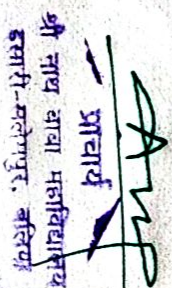 प्राचार्य
श्री नाथ बाबा महाविद्यालय
हसारी-फतेहपुर, बलिया